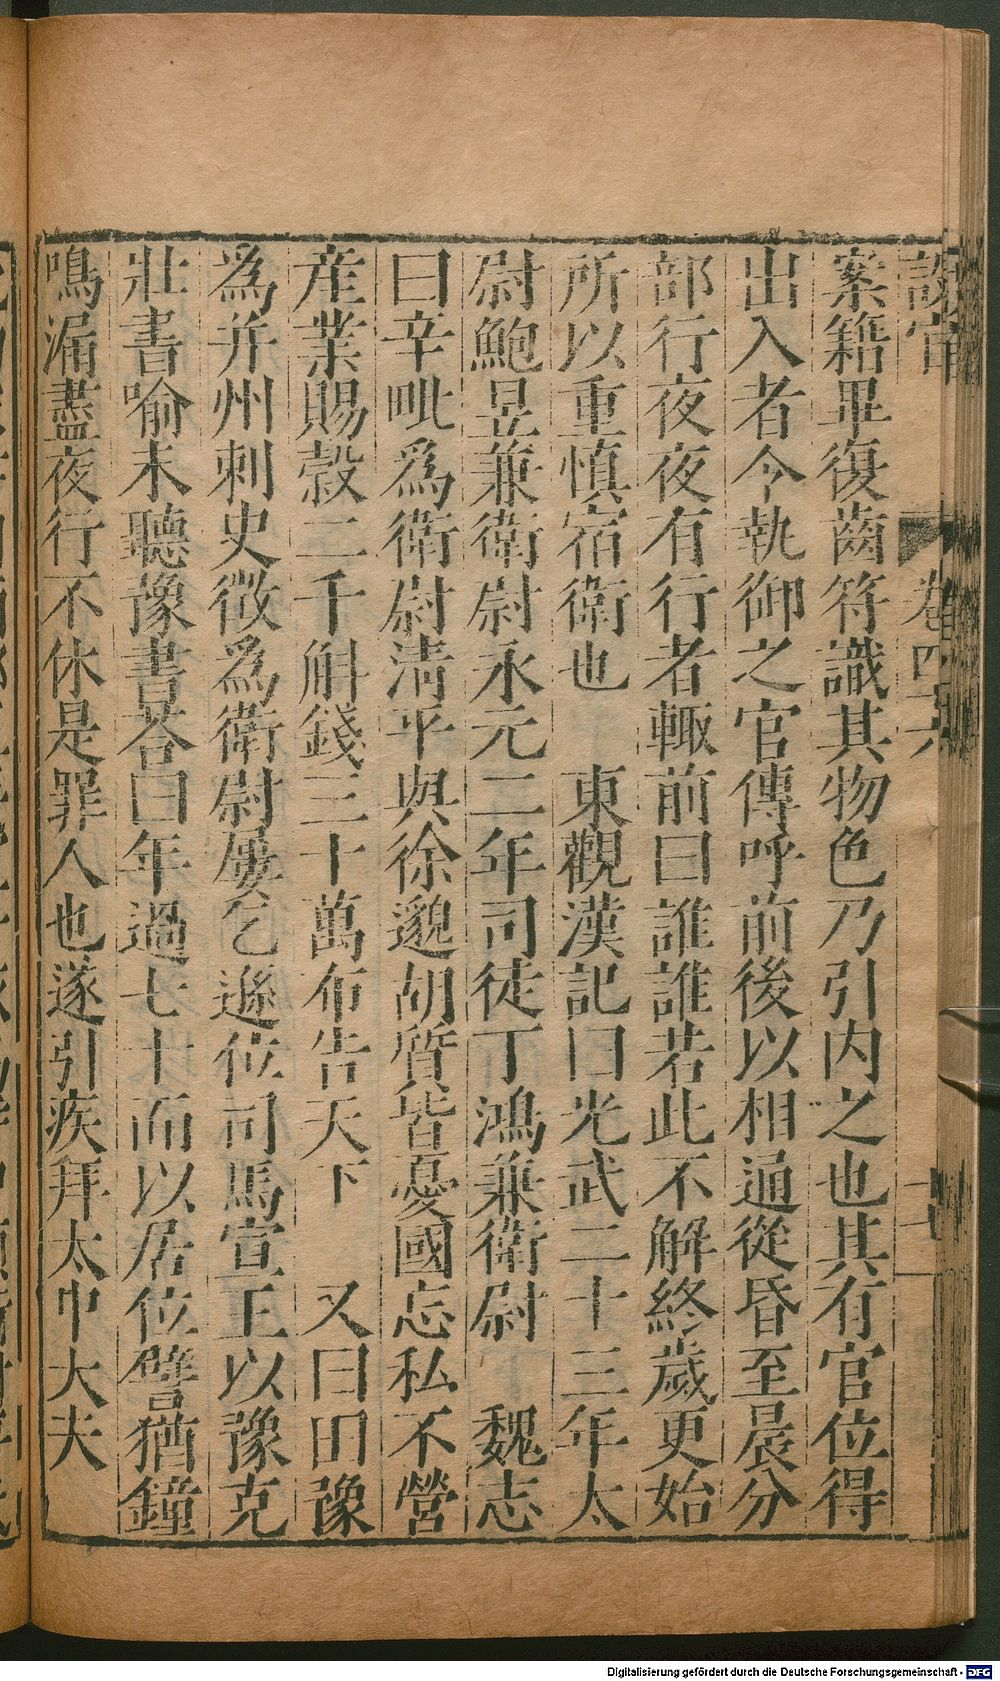 設官
卷四六
十七
案籍畢復齒符識其物色乃引内之也其有官位得
出入者今執御之官傳呼前後以相通從昏至晨分
部行夜夜有行者輙前曰誰誰若此不解終歲更始
所以重慎宿衛也　東觀漢記曰光武二十三年太
尉鮑昱兼衛尉永元二年司徒丁鴻兼衛尉　魏志
曰辛毗爲衛尉淸平與徐邈胡質皆憂國忘私不營
産業賜穀二千斛錢三十萬布告天下　又曰田豫
爲并州刺史徴爲衛尉屢乞遜位司馬宣王以豫克
壯書喻未聽豫書荅曰年過七十而以居位譬猶鐘
鳴漏盡夜行不休是罪人也遂引疾拜太中大夫
Digitalisierung gefördert durch die Deutsche Forschungsgemeinschaft - DFG